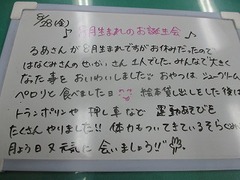 8/28(金)
♪8月生まれのお誕生会♪
るあさんが8月生まれですがお休みだったので
はなぐみさんのせいさん1人でした。みんなで大きく
なた事をおいわいしました♡おやつは、シュークリーム、
ペロリと食べました日 絵本貸し出しをした後は
トランポリンや 押し車など 運動あそびを
たくさんやりました!! 体力もついてきているそらぐみ
月よう日又元気に 会いましょう!!